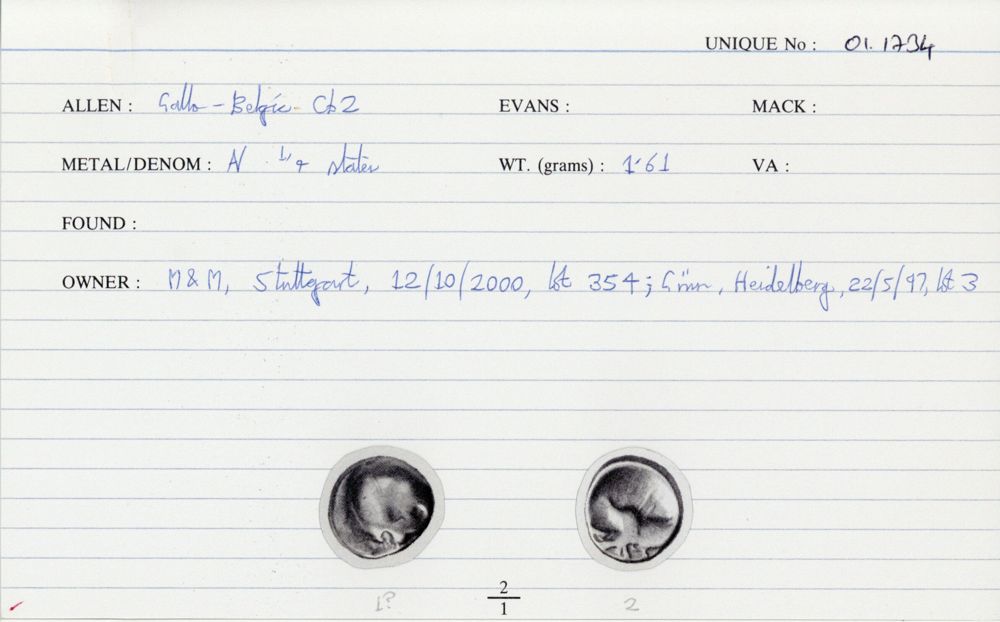 UNIQUE No : 01.1734
ALLEN : Gallo-Belgic Cb2 EVANS : MACK :
METAL/DENOM : N 1/4 stater WT. (grams) : 1.61 VA :
FOUND :
OWNER : M&M, Stuttgart, 12/10/2000, lot 354; Heidelberg, 22/5/97, lot 3
1? 2/1 2